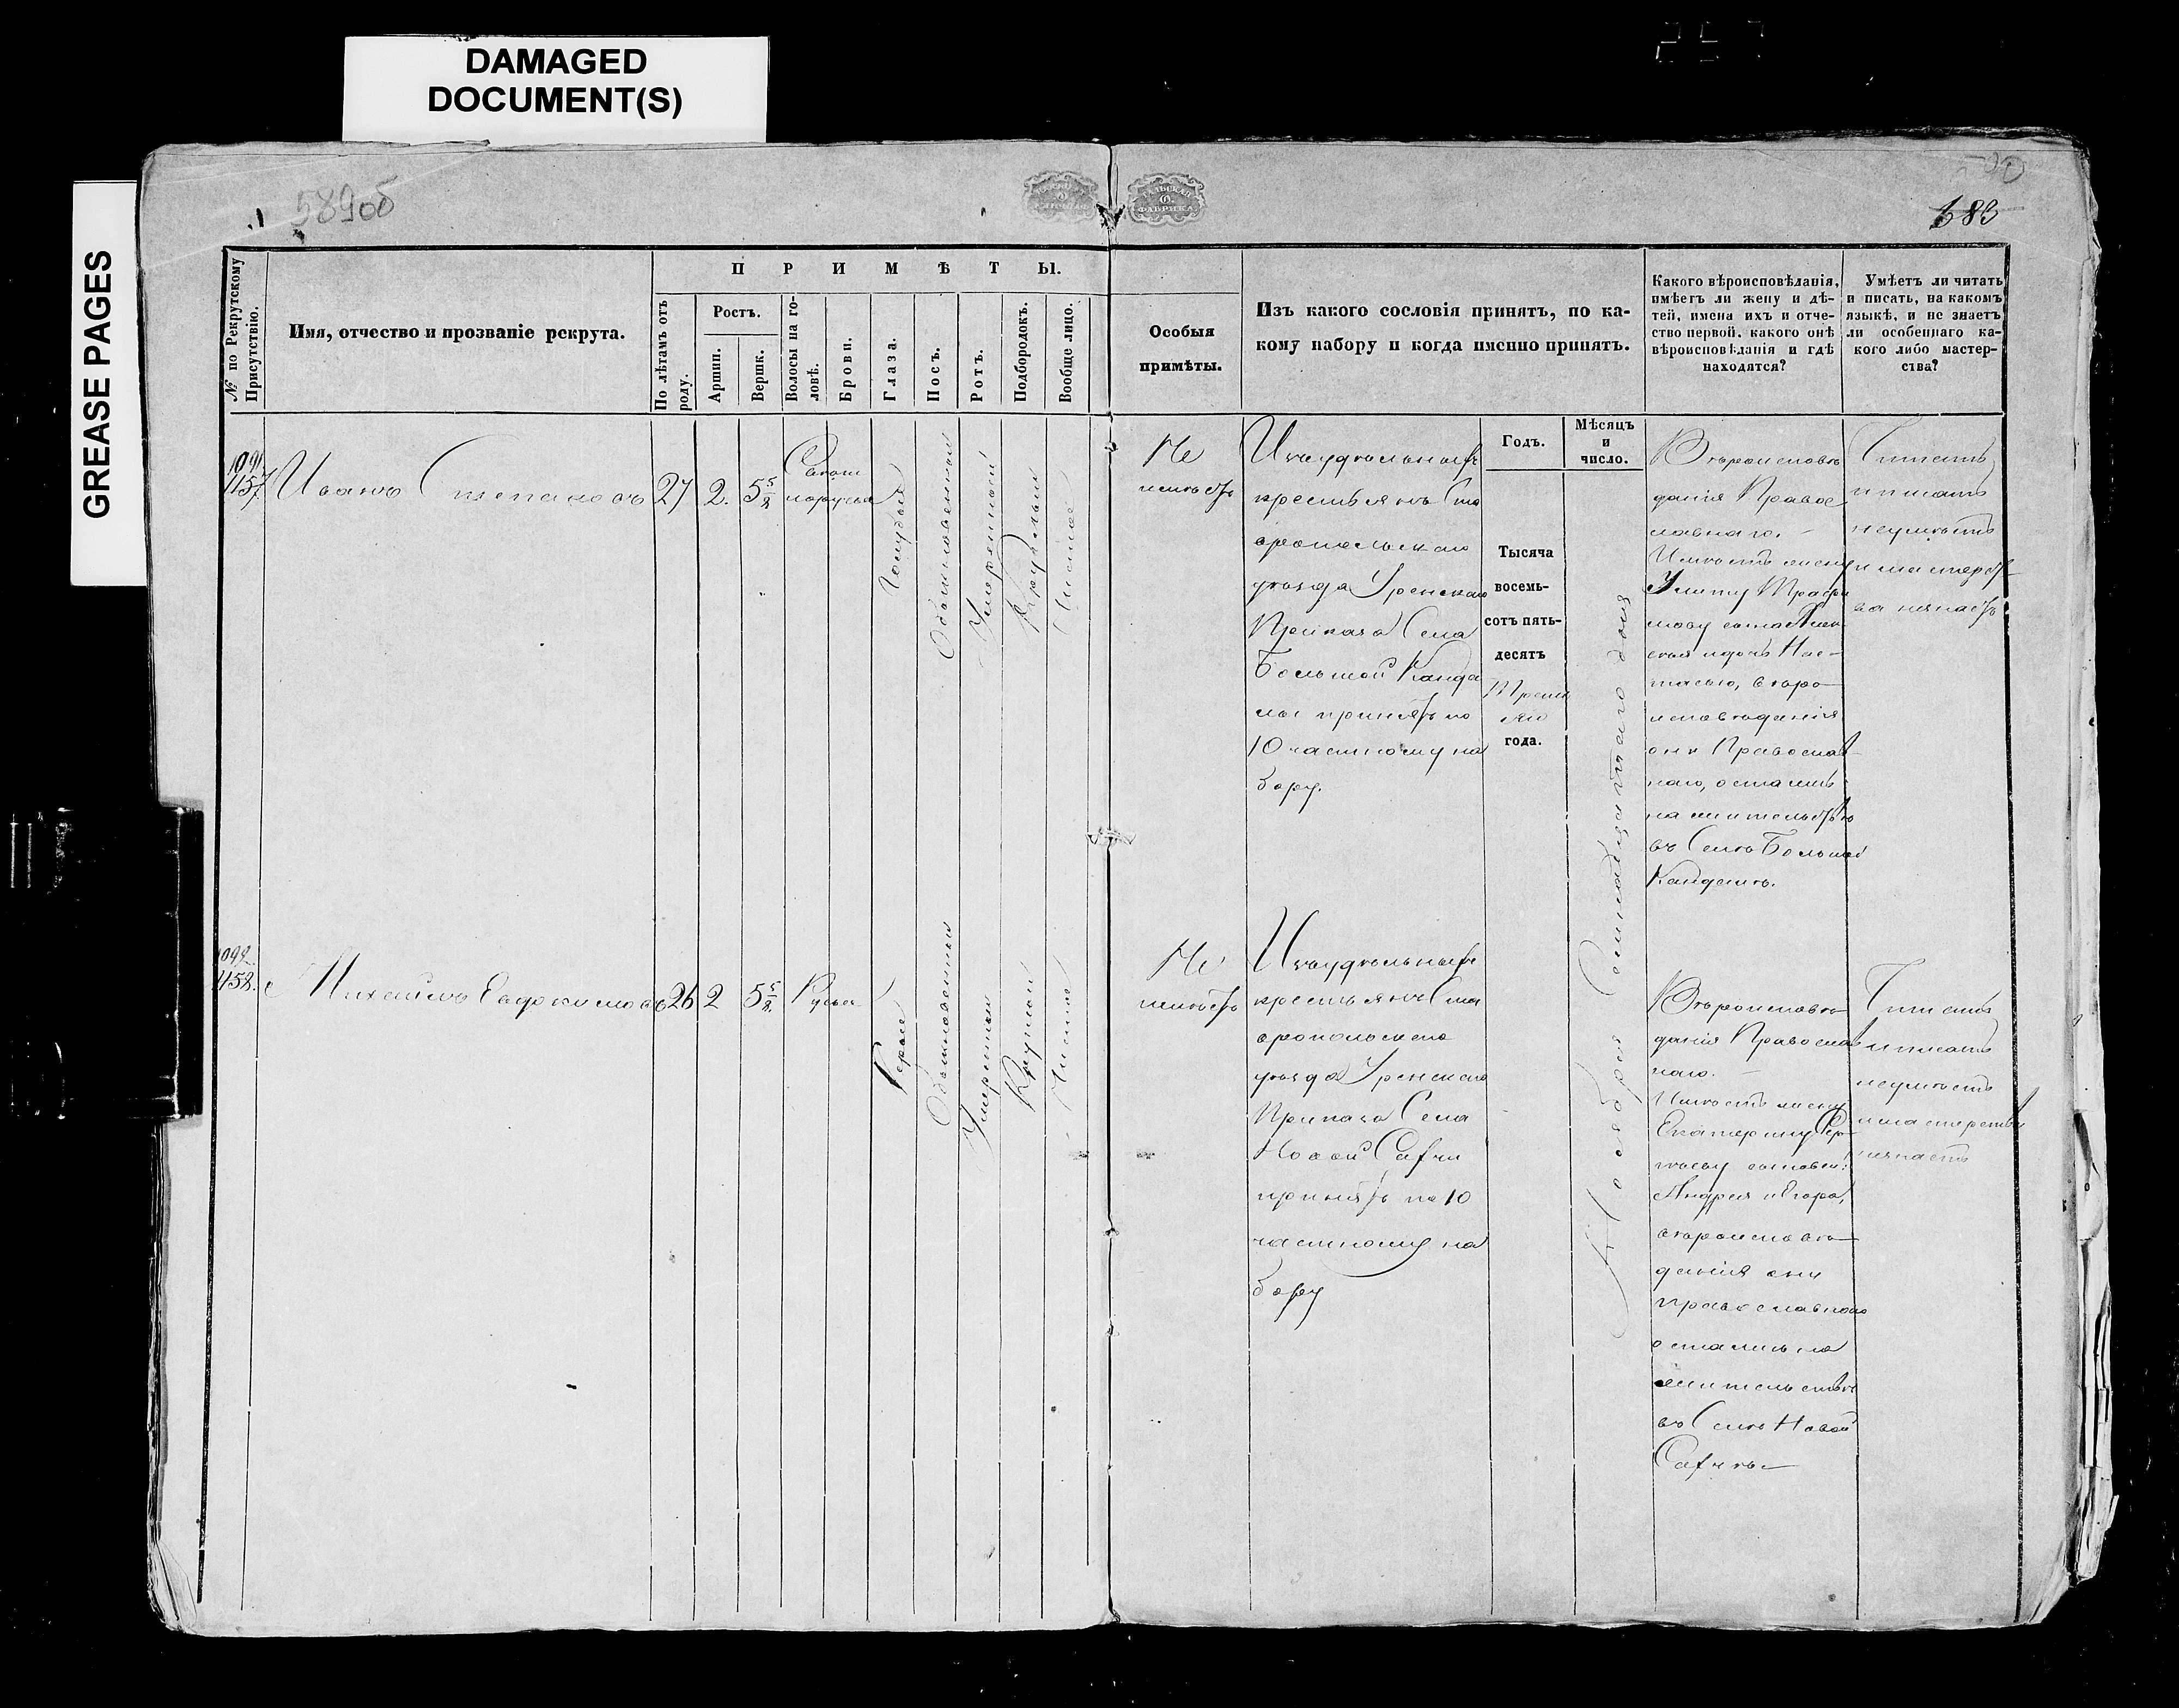 DAMAGED
DOCUMENT(S)
GREASE PAGES
589об
583
ПРИМѢТЫ.
№ по Рекрутскому
Присутствію.
Имя, отчество и прозваніе рекрута.
По лѣтамъ отъ
роду.
Ростъ.
Аршин.
Вершк.
Волосы на го-
ловѣ.
Брови.
Глаза.
Носъ.
Ротъ.
Подбородокъ.
Вообще лицо.
Особыя
примѣты.
Изъ какого сословія принятъ, по ка-
кому набору и когда именно принятъ.
Какого вѣроисповѣданія,
имѣетъ ли жену и дѣ-
тей, имена ихъ и отче-
ство первой, какого онѣ
вѣроисповѣданія и гдѣ
находятся?
Умѣетъ ли читать
и писать, на какомъ
языкѣ, и не знаетъ
ли особеннаго ка-
кого либо мастер-
ства?
Годъ.
Мѣсяцъ
и
число.
1091
1157
Иванъ Степановъ
27
2.
5 5/8
Свѣтло
русые
Голубые
Обыкновенный
Умѣренный
Круглый
Чистое
Не
имѣетъ
Изъ удѣльныхъ
крестьянъ Ста
вропольскаго
уѣзда Уренскаго
Приказа Села
Большой Канда
лы принятъ по
10 частному на
бору.
Тысяча
восемь-
сотъ пять-
десятъ
Треть
яго
года.
Ноября Семнадцатаго дня
Вѣроисповѣ
данія Правос
лавнаго.
Имѣетъ жену
Улиту Трофи
мову сына Алек
сѣя и дочь Нас-
тасью, вѣро-
исповѣданія
они Православ-
наго, остались
на жительствѣ
въ Селѣ Большой
Кандалѣ.
Читать
и писать
неумѣетъ
и мастерст
ва незнаетъ
1092
1158.
Михайло Евдокимовъ
26
2
5 5/8.
Русые
Сѣрые
Обыкновенный
Умѣренный
Круглый
Чистое
Не
имѣетъ
Изъ удѣльныхъ
крестьянъ Ста
вропольскаго
уѣзда Уренскаго
Приказа Села
Новой
принятъ по 10
частному на
бору
Вѣроисповѣ
данія Православ
наго.
Имѣетъ жену
Екатерину Сер-
гѣеву сыновей:
Андрея и Егора,
вѣроисповѣ-
данія они
православнаго
остались на
жительствѣ
въ Селѣ Новой
Читать
и писать
неумѣетъ
и мастерства
незнаетъ